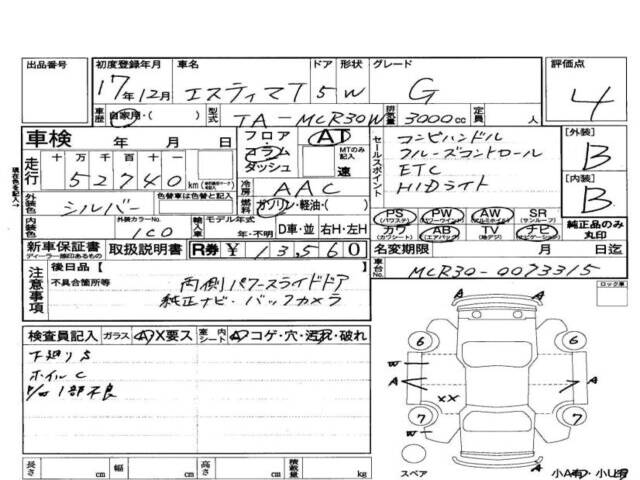 出品番号
初度登録年月
17年12月
車名
エスティマT
ドア
5
形状
W
グレード
G
評価点
4
車歴
自家用・( )
型式
TA-MCR30W
排気量
3000cc
定員
人
車検 年 月 日
フロア
コラム
ダッシュ
AT
MTのみ記入
速
セールスポイント
コンビハンドル
クルーズコントロール
ETC
HIDライト
[外装]
B
[内装]
B
純正品のみ丸印
現在色を記入→
走行
十 万 千 百 十 一
52740
km
冷房
AAC
外装色
シルバー
色替車は色替と記入
燃料
ガソリン・軽油・( )
内装色
外装カラーNo.
1C0
輸入車
モデル年式
年・不明
D車・並
右H・左H
PS (パワステ)
PW (パワーウインド)
AW (アルミホイル)
SR (サンルーフ)
カワ (カワシート)
AB (エアバック)
TV (地デジ)
ナビ (ナビゲーション)
新車保証書
ディーラー印があるもの
取扱説明書
R券 ¥13,560
名変期限 月 日迄
車台No.
MCR30-0073315
注意事項
後日品【 】
不具合箇所等
両側パワースライドドア
純正ナビ・バックカメラ
ロック車
検査員記入
ガラス
A X要ス
室内
シート
A コゲ・穴・汚れ・破れ
下廻りS
ホイルC
1部不良
A
6 6
W
A A
XX
7 7
W
A
スペア
小A有・小U有
長さ cm
幅 cm
高さ cm
積載量 kg